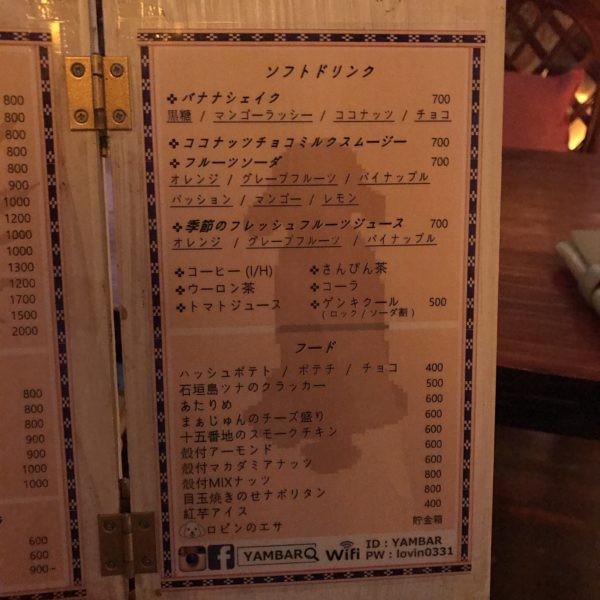 ソフトドリンク
バナナシェイク 700
黒糖 / マンゴーラッシー / ココナッツ / チョコ
ココナッツチョコミルクスムージー 700
フルーツソーダ 700
オレンジ / グレープフルーツ / パイナップル
パッション / マンゴー / レモン
季節のフレッシュフルーツジュース 700
オレンジ / グレープフルーツ / パイナップル
コーヒー (I/H) さんぴん茶
ウーロン茶 コーラ
トマトジュース ゲンキクール 500
( ロック / ソーダ割 )
フード
ハッシュポテト / ポテチ / チョコ 400
石垣島ツナのクラッカー 500
あたりめ 600
まぁじゅんのチーズ盛り 600
十五番地のスモークチキン 600
殻付アーモンド 600
殻付マカダミアナッツ 600
殻付MIXナッツ 600
目玉焼きのせナポリタン 800
紅芋アイス 400
ロビンのエサ 貯金箱
YAMBAR Wifi ID : YAMBAR
PW : lovin0331
800
800
800
800
900
1000
1000
1000
1300
1200
1500
2000
800
800
800
900
900
1000
600
600
900